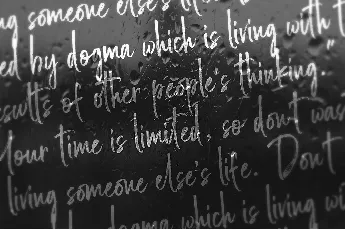 ng someone else's life.
ed by dogma which is living with t
esults of other people's thinking."
Your time is limited, so don't was
living someone else's life. Don't
dogma which is living wi